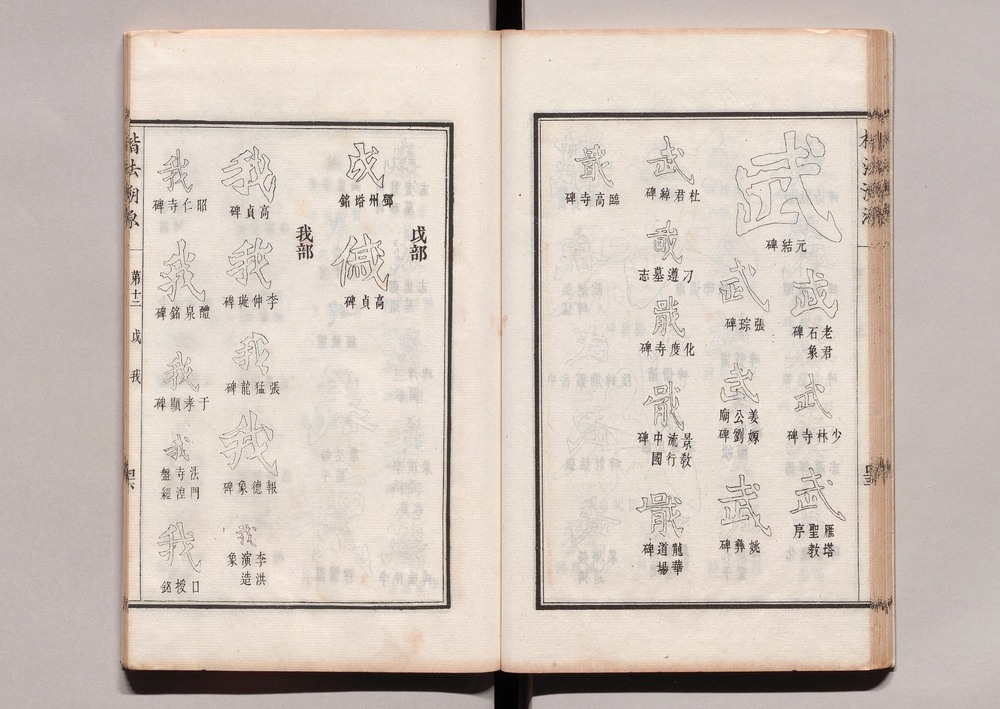 楷法溯源
武
元結碑
武
老君石象碑
武
少林寺碑
武
雁塔聖教序
武
張琮碑
武
姜嫄公劉廟碑
武
姚彝碑
武
杜君綽碑
刁遵墓志
化度寺碑
景教流行中國碑
龍華道場碑
高寺碑
戉部
鄧州塔銘
高貞碑
我部
我
高貞碑
我
李仲璇碑
我
張猛龍碑
我
報德象碑
我
李洪演造象
我
昭仁寺碑
我
醴泉銘碑
我
于孝顯碑
我
法門寺湼盤經
我
口授銘
楷法溯源
第十二
戉
我